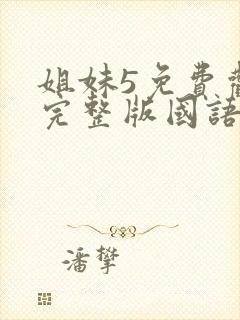 姐妹5免費
完整版國語
潘攀